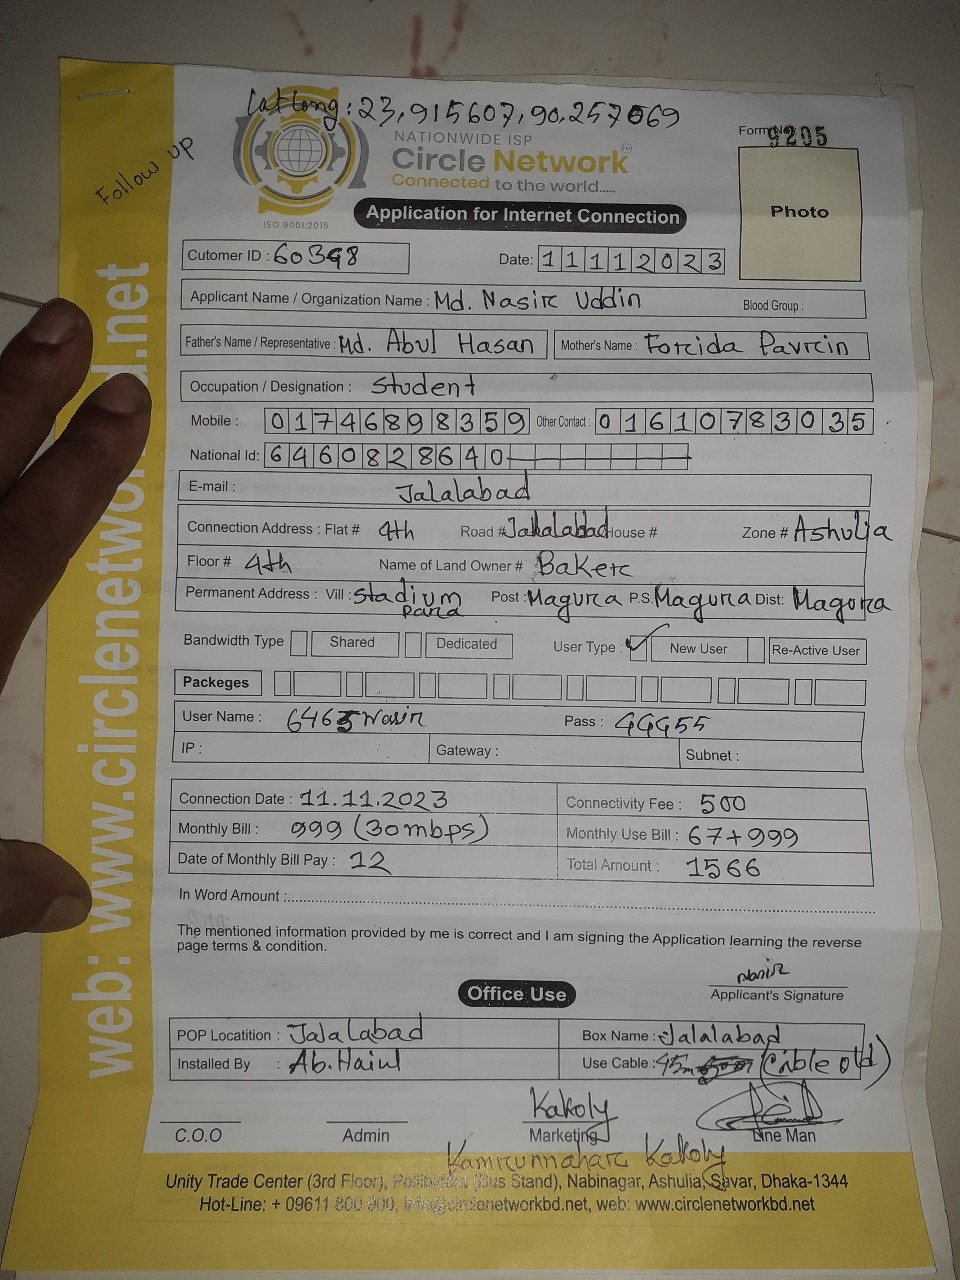 Lat Long : 23.915607, 90.257069
Follow up
NATIONWIDE ISP
Circle Network
Connected to the world.....
ISO 9001:2015
Form No 9205
Photo
Application for Internet Connection
Cutomer ID : 60398
Date: 11112023
Applicant Name / Organization Name : Md. Nasir Uddin Blood Group :
Father's Name / Representative : Md. Abul Hasan Mother's Name : Forida Pavrin
Occupation / Designation : Student
Mobile : 01746898359 Other Contact : 01610783035
National Id: 6460828640
E-mail : Jalalabad
Connection Address : Flat # 4th Road # Jalalabad House # Zone # Ashulia
Floor # 4th Name of Land Owner # Baker
Permanent Address : Vill : Stadium Para Post : Magura P.S. Magura Dist: Magura
Bandwidth Type Shared Dedicated User Type : New User Re-Active User
Packeges
User Name : 6465Nasir Pass : 44455
IP : Gateway : Subnet :
Connection Date : 11.11.2023 Connectivity Fee : 500
Monthly Bill : 999 (30mbps) Monthly Use Bill : 67+999
Date of Monthly Bill Pay : 12 Total Amount : 1566
In Word Amount :
The mentioned information provided by me is correct and I am signing the Application learning the reverse
page terms & condition.
Nasir
Applicant's Signature
Office Use
POP Locatition : Jalalabad Box Name : Jalalabad
Installed By : Use Cable : 45m (Cable old)
Kakoly
C.O.O Admin Marketing Line Man
Kamrunnahar Kakoly
Unity Trade Center (3rd Floor), (Bus Stand), Nabinagar, Ashulia, Savar, Dhaka-1344
Hot-Line: + 09611 800 900, info@circlenetworkbd.net, web: www.circlenetworkbd.net
web: www.circlenetworkbd.net